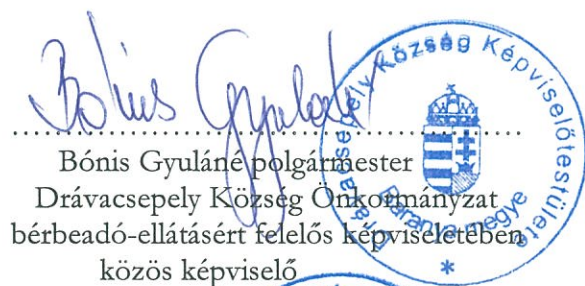 Bónis Gyuláné
Bónis Gyuláné polgármester
Drávacsepely Község Önkormányzat
bérbeadó-ellátásért felelős képviseletében
közös képviselő
Drávacsepely Község Képviselőtestülete
Baranya megye
*